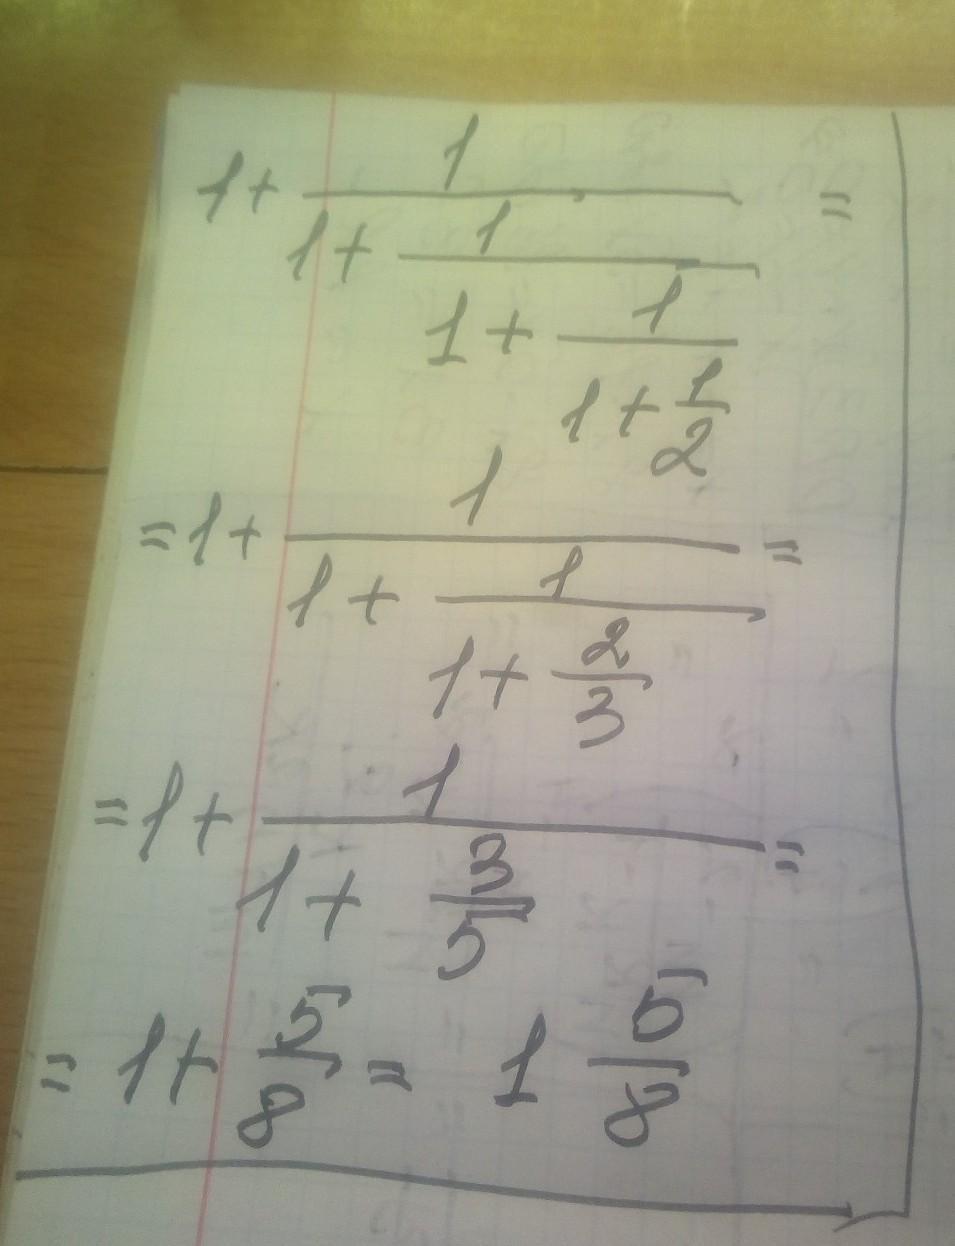 1 + 1/(1 + 1/(1 + 1/(1 + 1/2))) =
= 1 + 1/(1 + 1/(1 + 2/3)) =
= 1 + 1/(1 + 3/5) =
= 1 + 5/8 = 1 5/8